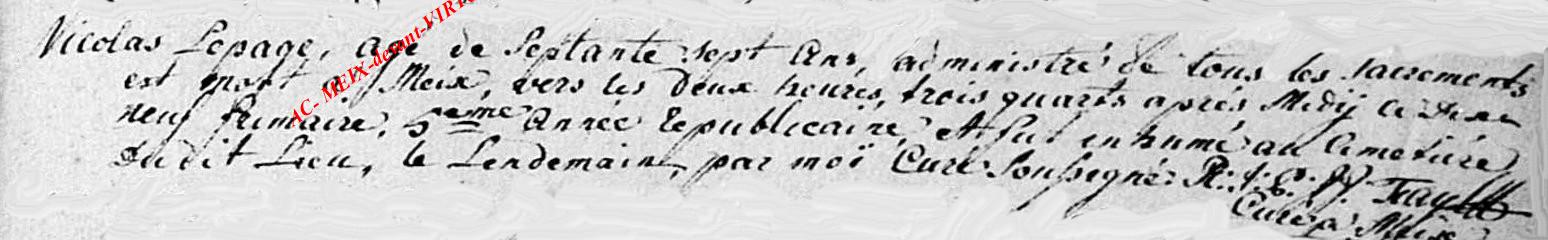 Nicolas Lepage, age de Septante sept Ans, administré de tous les sacrements
est mort a Meix, vers les deux heures, trois quarts aprés Midÿ le dix
neuf frimaire, 5eme Année Republicaine, et fut inhumé au Cimetiére
dudit Lieu, le Lendemain, par moï Curé Soussigné
Curé à Meix
AC- MEIX-devant-VIRT